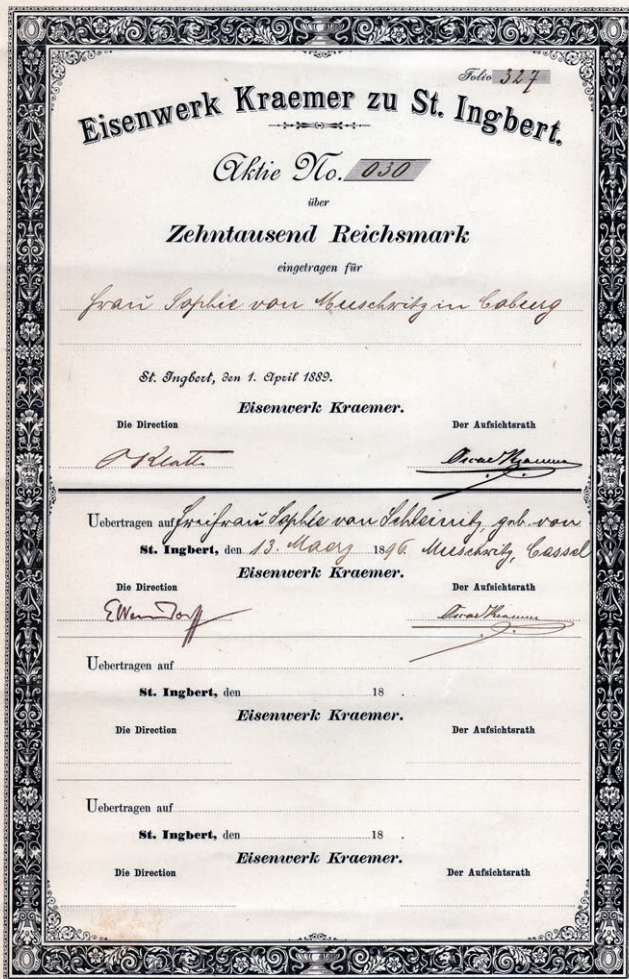 Folio 327
Eisenwerk Kraemer zu St. Ingbert.
Aktie No. 030
über
Zehntausend Reichsmark
eingetragen für
Frau Sophie von Meuschwitz in Coburg
St. Ingbert, den 1. April 1889.
Eisenwerk Kraemer.
Die Direction Der Aufsichtsrath
Oscar Kraemer
Uebertragen auf Freifrau Sophie von Schleinitz, geb. von
St. Ingbert, den 13. Maerz 1896. Meuschwitz, Cassel
Eisenwerk Kraemer.
Die Direction Der Aufsichtsrath
Oscar Kraemer
Uebertragen auf
St. Ingbert, den 18 .
Eisenwerk Kraemer.
Die Direction Der Aufsichtsrath
Uebertragen auf
St. Ingbert, den 18 .
Eisenwerk Kraemer.
Die Direction Der Aufsichtsrath